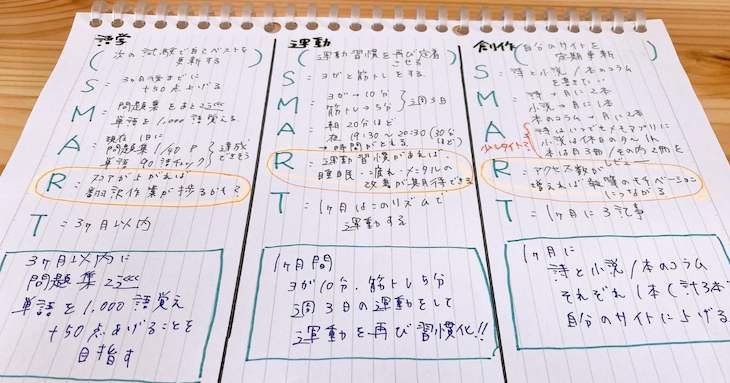 語学
(次の試験で自己ベストを
更新する)
S = 3ヶ月後までに
+50点上げる
M = 問題集をあと2冊
単語を1,000語覚える
A = 現在1日に
問題集1/40P
単語90語チェック
達成できそう
R = スコアが上がれば
翻訳作業が捗るかも?
T = 3ヶ月以内
3ヶ月以内に
問題集2冊
単語を1,000語覚え
+50点あげることを
目指す
運動
(運動習慣を再び定着
させる)
S = ヨガと筋トレをする
M = ヨガ→10分
筋トレ→5分
週3日
A = 朝20分ほど
夜19:30~20:30(30分
ほど)
→時間がとれる
R = 運動習慣があれば、
睡眠・疲れ・メンタルの
改善が期待できる
T = 1ヶ月はこのリズムで
運動する
1ヶ月間
ヨガ10分、筋トレ5分
週3日の運動をして
運動を再び習慣化!!
創作
(自分のサイトを
定期更新)
S = 詩と小説/本のコラム
を書く
M = 詩→月に2本
小説→月に1本
本のコラム→月に1本
A = 詩はいつでもメモアプリに
小説は休日の夕~
本は月3冊/その内2冊を
少しタイト?
R = アクセス数が
増えれば執筆のモチベーション
につながる
T = 1ヶ月に3記事
1ヶ月に
詩と小説/本のコラム
それぞれ1本(計3本)
自分のサイトに上げる